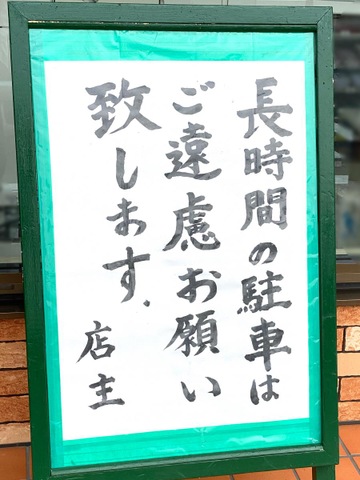 長時間の駐車は
ご遠慮お願い
致します.
店主